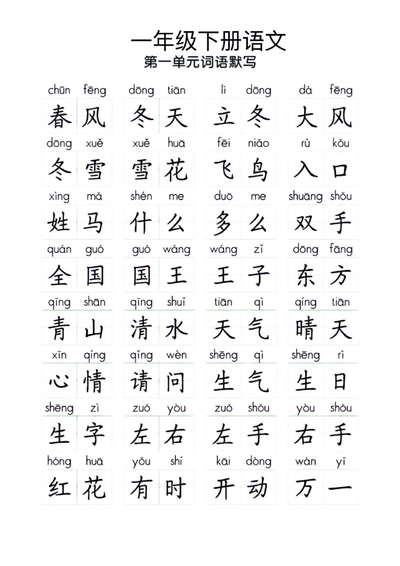 一年级下册语文
第一单元词语默写
chūn fēng dōng tiān lì dōng dà fēng
春风 冬天 立冬 大风
dōng xuě xuě huā fēi niǎo rù kǒu
冬雪 雪花 飞鸟 入口
xìng mǎ shén me duō me shuāng shǒu
姓马 什么 多么 双手
quán guó guó wáng wáng zǐ dōng fāng
全国 国王 王子 东方
qīng shān qīng shuǐ tiān qì qíng tiān
青山 清水 天气 晴天
xīn qíng qǐng wèn shēng qì shēng rì
心情 请问 生气 生日
shēng zì zuǒ yòu zuǒ shǒu yòu shǒu
生字 左右 左手 右手
hóng huā yǒu shí kāi dòng wàn yī
红花 有时 开动 万一